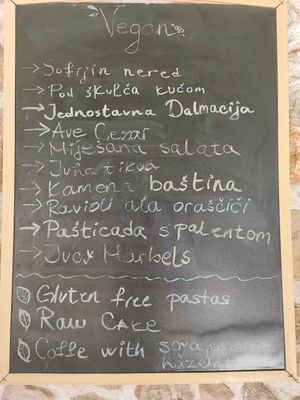 Vegan
→ Sofijin nered
→ Pod škulća kućom
→ Jednostavna Dalmacija
→ Ave Cezar
→ Miješana salata
→ Juha tikva
→ Kamena baština
→ Ravioli ala oraščići
→ Pašticada s palentom
→ Juicy Marbels
Gluten free pastas
Raw Cake
Coffe with soya,